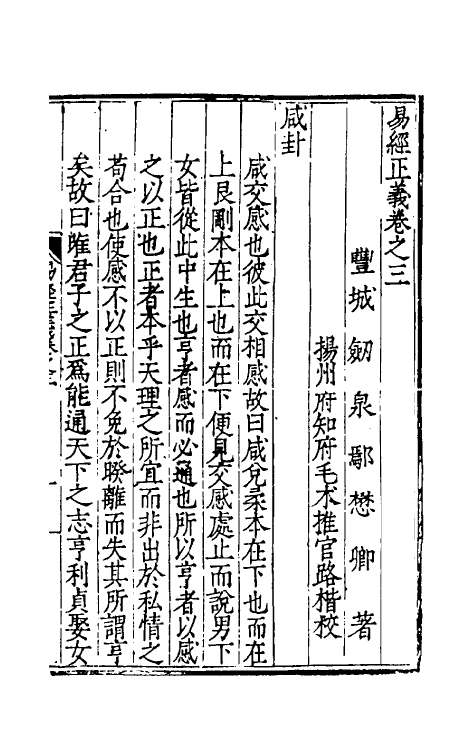 易經正義卷之三
豐城劒泉鄢懋卿著
揚州府知府毛木推官路楷校
咸卦
咸交感也彼此交相感故曰咸兌柔本在下也而在
上艮剛本在上也而在下便見交感處止而說男下
女皆從此中生也亨者感而必通也所以亨者以感
之以正也正者本乎天理之所宜而非出於私情之
苟合也使感不以正則不免於暌離而失其所謂亨
矣故曰唯君子之正爲能通天下之志亨利貞娶女